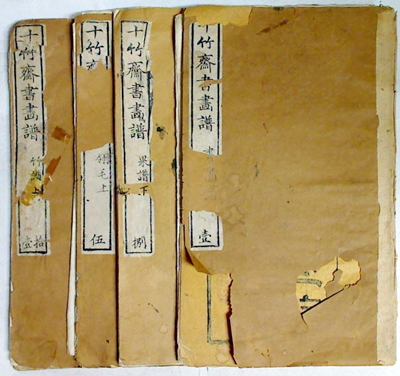 十竹齋書畫譜
壹
十竹齋書畫譜
果譜下
捌
十竹
翎毛上
伍
十竹齋書畫譜
竹譜上
拾壹